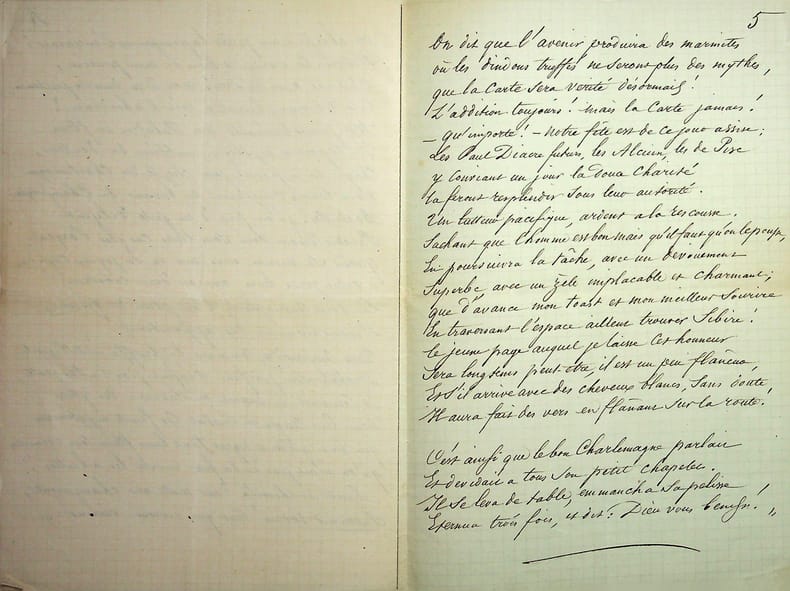 5
On dit que l'avenir produira des marmites
où les dindons truffés ne seront plus des mythes,
que la Carte sera verité désormais!
L'addition toujours! mais la Carte jamais!
– qu'importe! – Notre fête est de ce jour assise;
Les Paul Diacre futurs, les Alcuin, les de Pise
y conviant un jour la douce Charité
la feront resplendir sous leur autorité.
Un lutteur pacifique, ardent a la rescousse.
Sachant que l'homme est bon mais qu'il faut qu'on le pousse,
En poursuivra la tâche, avec un dévouement
Superbe avec un zèle implacable et charmant;
que d'avance mon toast et mon meilleur Sourire
En traversant l'espace aillent trouver !
Le jeune page auquel je laisse cet honneur
Sera longtems peut être, il est un peu flaneur
Et s'il arrive avec des cheveux blancs, sans doute,
Il aura fait des vers en flânant sur la route!
C'est ainsi que le bon Charlemagne parlait
Et devidait a tous son petit chapelet.
Il se leva de table, emmancha sa pelisse
Eternua trois fois, et dit: Dieu vous benisse! "